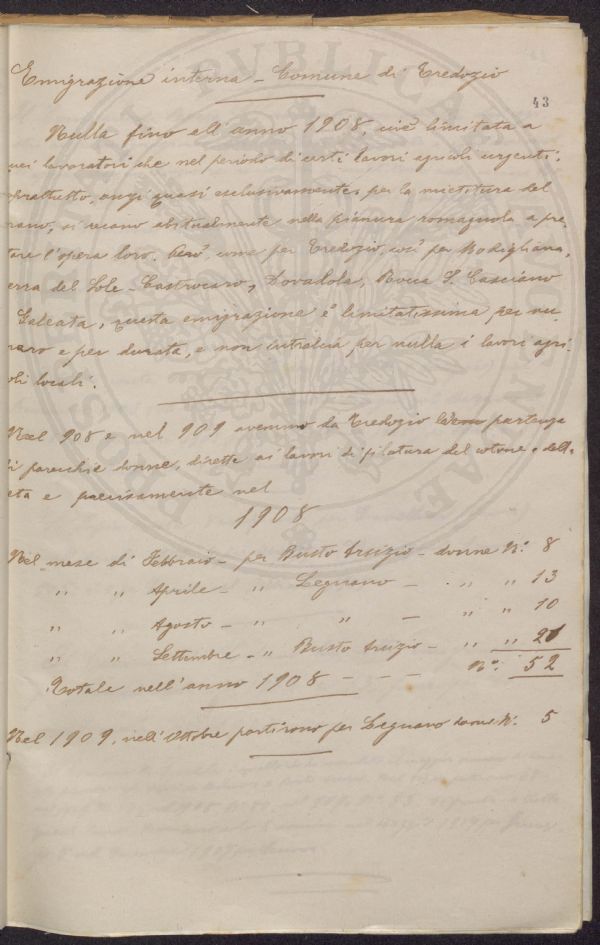 Emigrazione interna – Comune di Tredozio
43
Nulla fino all'anno 1908, cioè limitata a
quei lavoratori che nel periodo di certi lavori agricoli urgenti,
soprattutto, anzi quasi esclusivamente, per la mietitura del
grano, si recano abitualmente nella pianura romagnola a pre-
tare l'opera loro. Però, come per Tredozio, così per Modigliana,
erra del Sole – Castrocaro, Dovadola, Rocca S. Casciano
Galeata, questa emigrazione è limitatissima per nu
mero e per durata, e non intralcia per nulla i lavori agri-
oli locali.
Nel 908 e nel 909 avvenne da Tredozio la partenza
di parecchie donne, dirette ai lavori di filatura del cotone e della
eta e precisamente nel
1908
Nel mese di Febbraio – per Busto Arsizio – donne N.° 8
" " Aprile – " Legnano – " " 13
" " Agosto – " " – " " 10
" " Settembre – " Busto Arsizio – " " 21
Totale nell'anno 1908 – – – N.° 52
Nel 1909, nell'Ottobre partirono per Legnano donne N.° 5